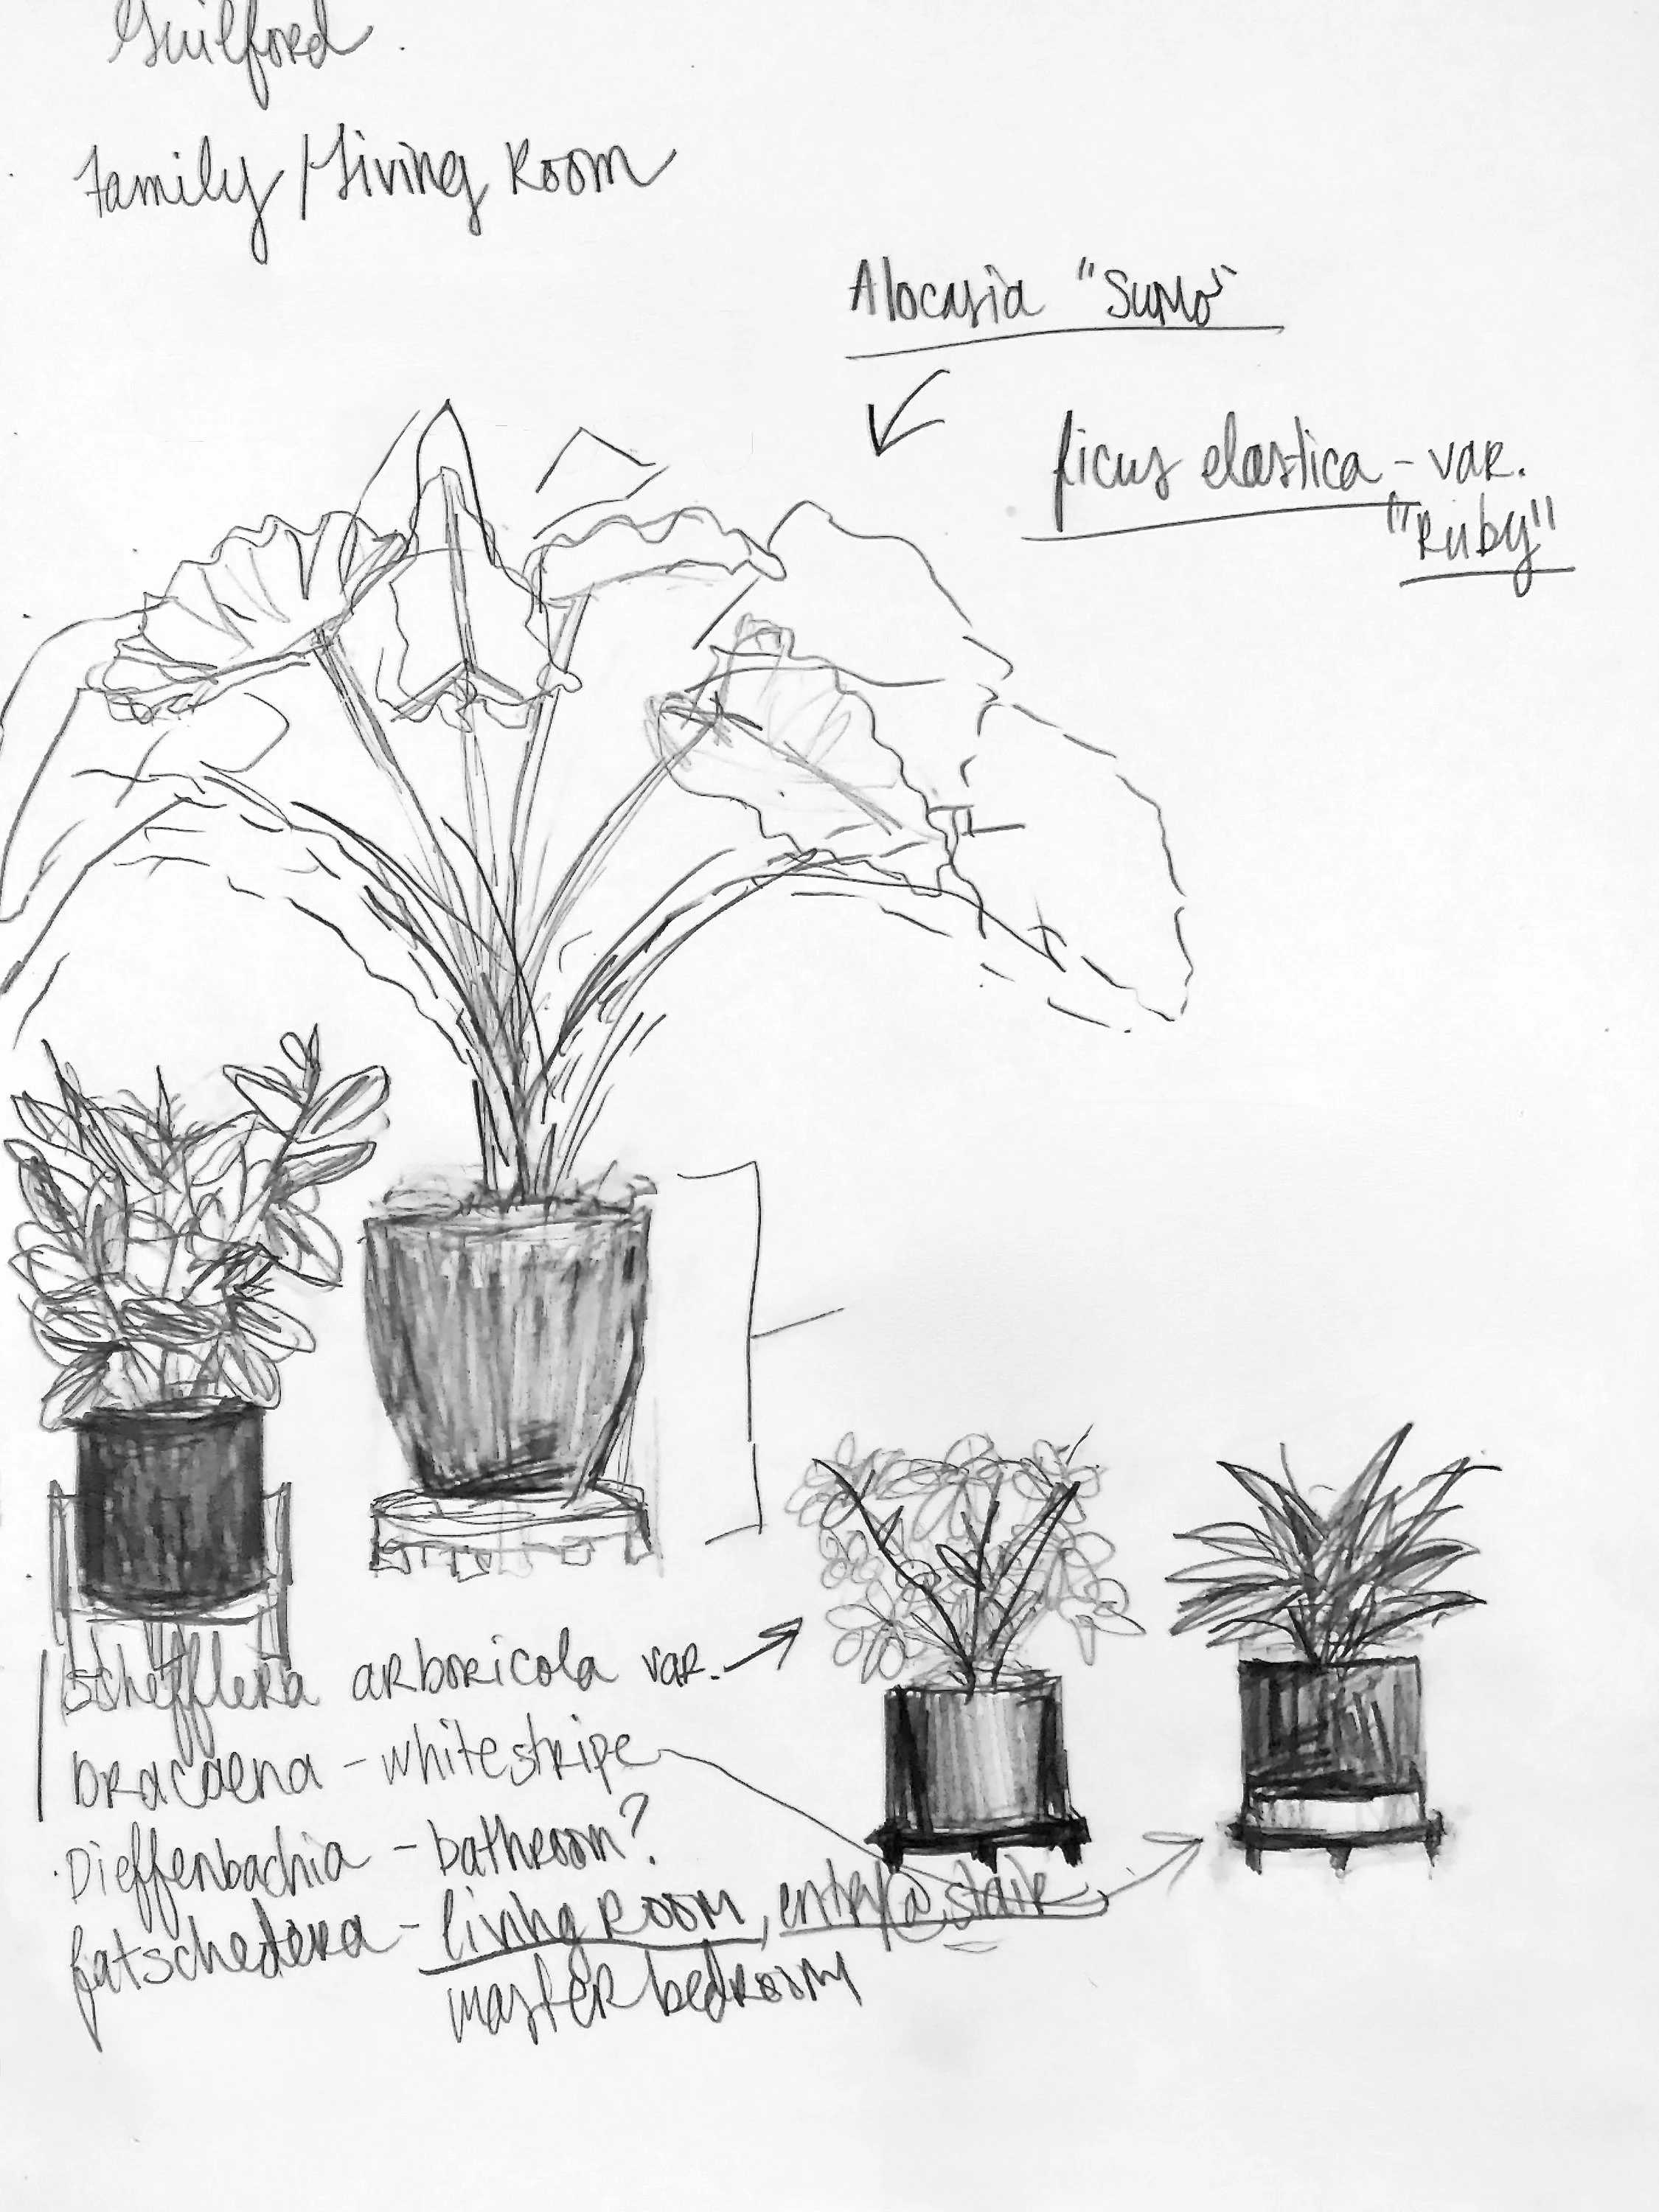 Guilford
Family/Living Room
Alocasia "Sumo"
ficus elastica - var.
"Ruby"
schefflera arboricola var.
Dracaena - whitestripe
Dieffenbachia - bathroom?
fatschedera - living room, entry@stair
master bedroom